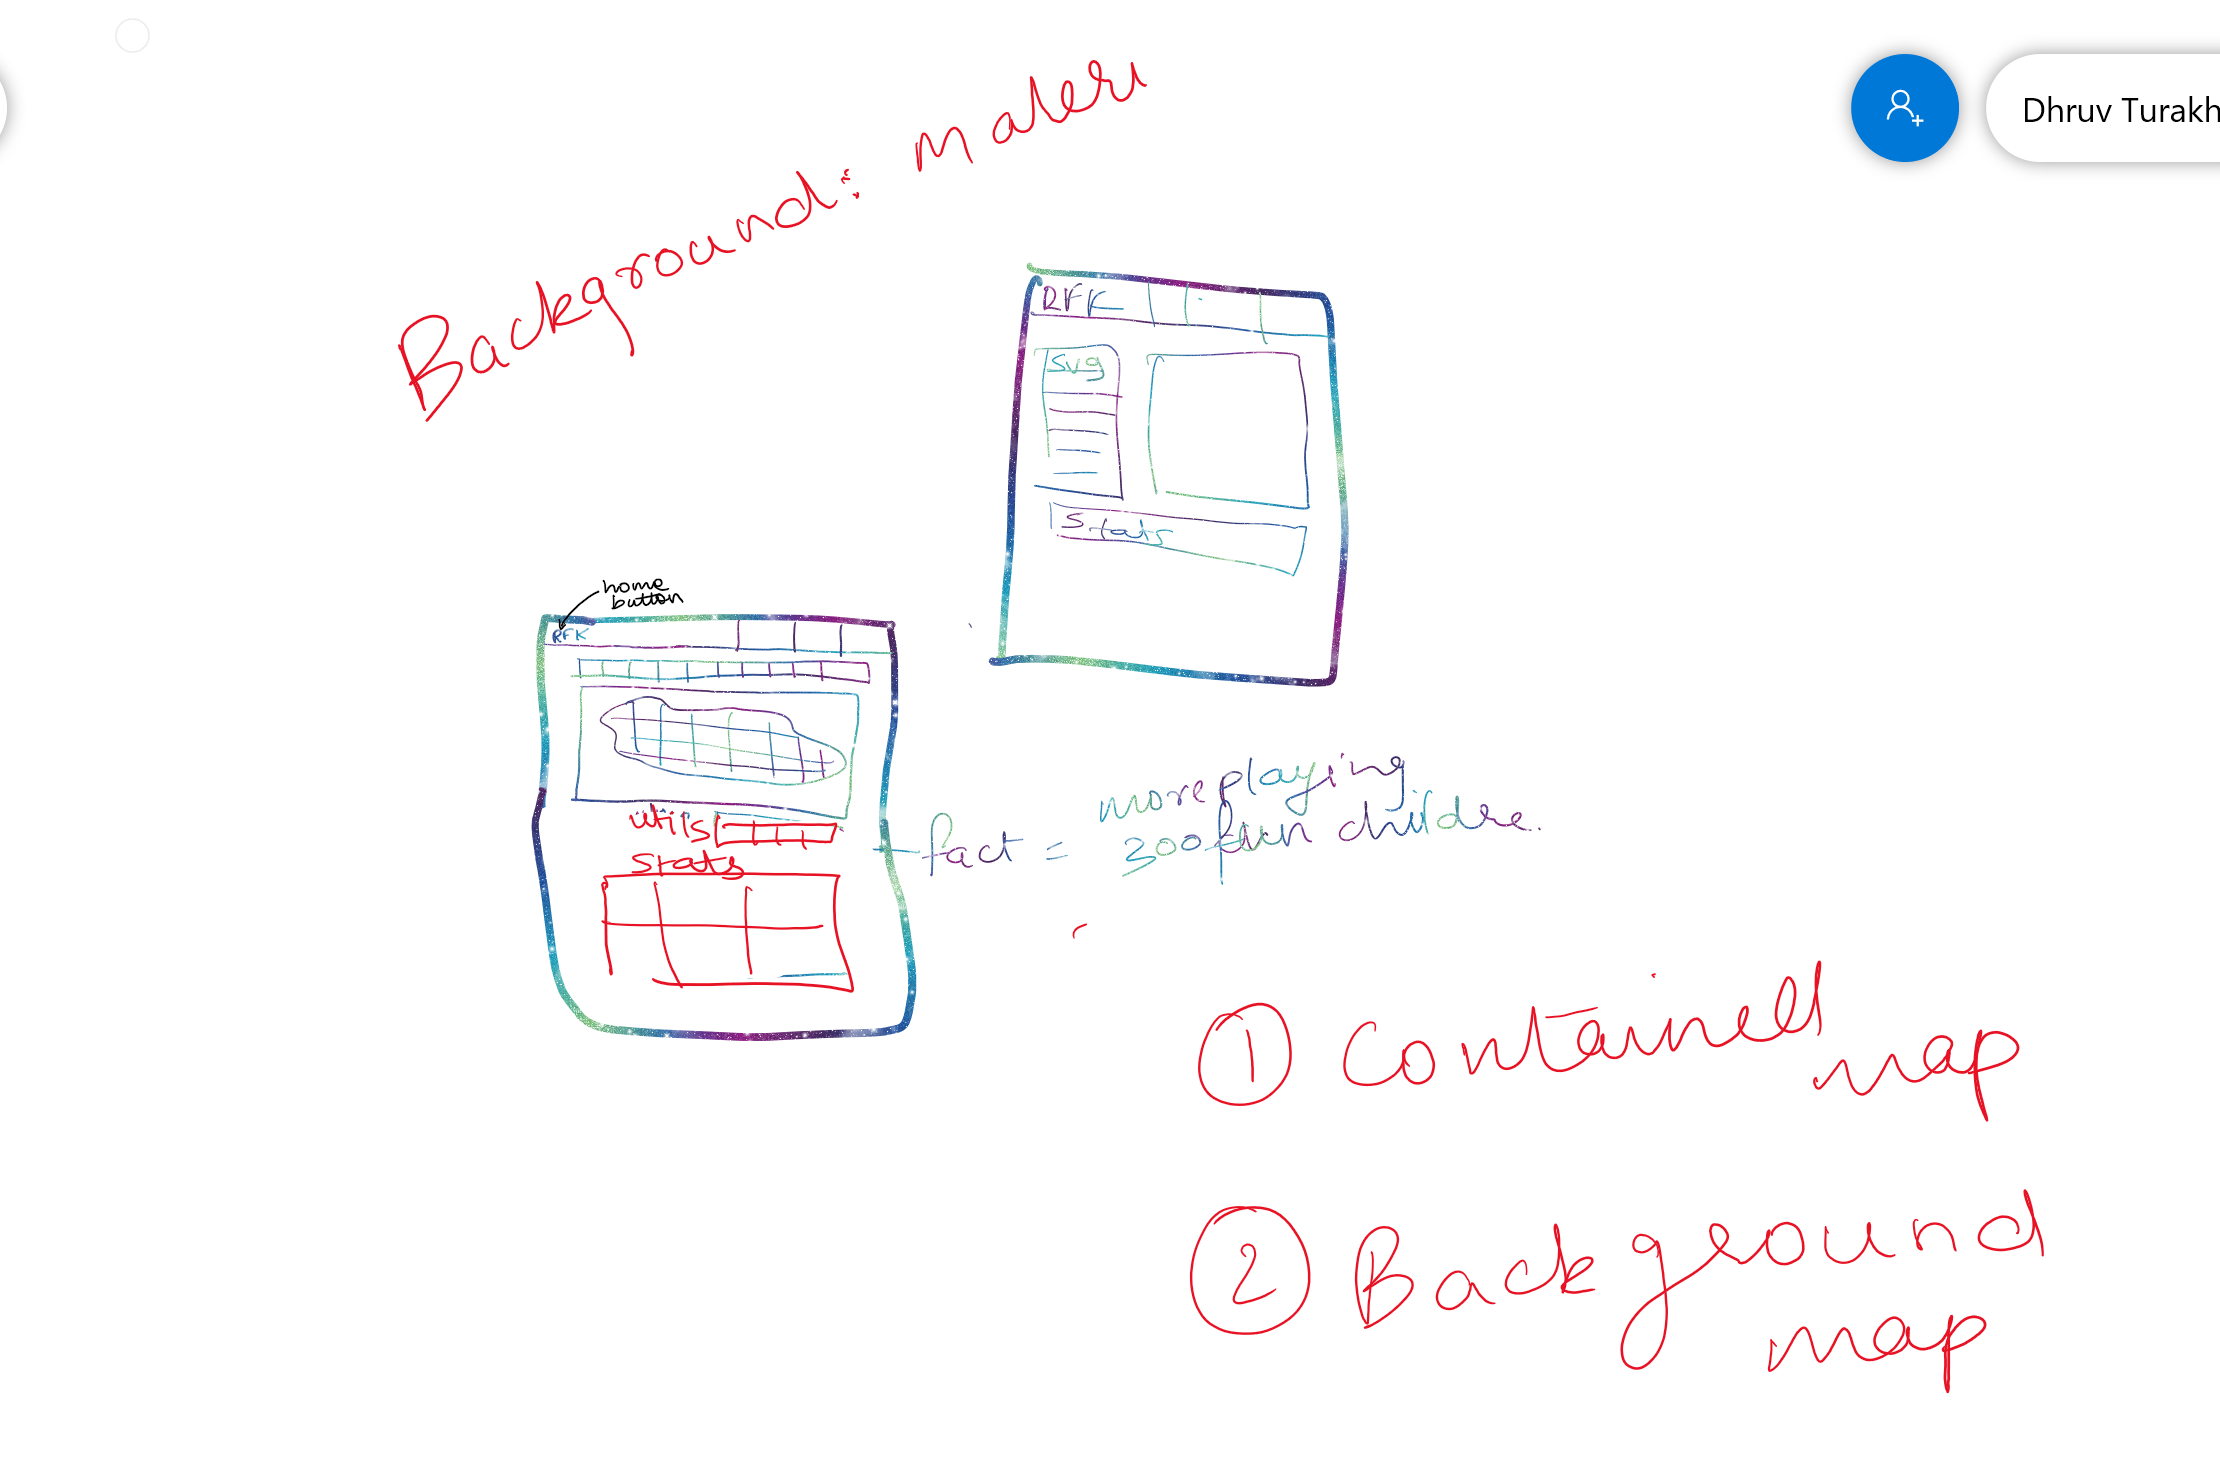 Background: materi
Dhruv Turakh
RFK
svg
Stats
home
button
RFK
utils
Stats
fact = more playing
300 fun childre.
1 Contained
map
2 Background
map